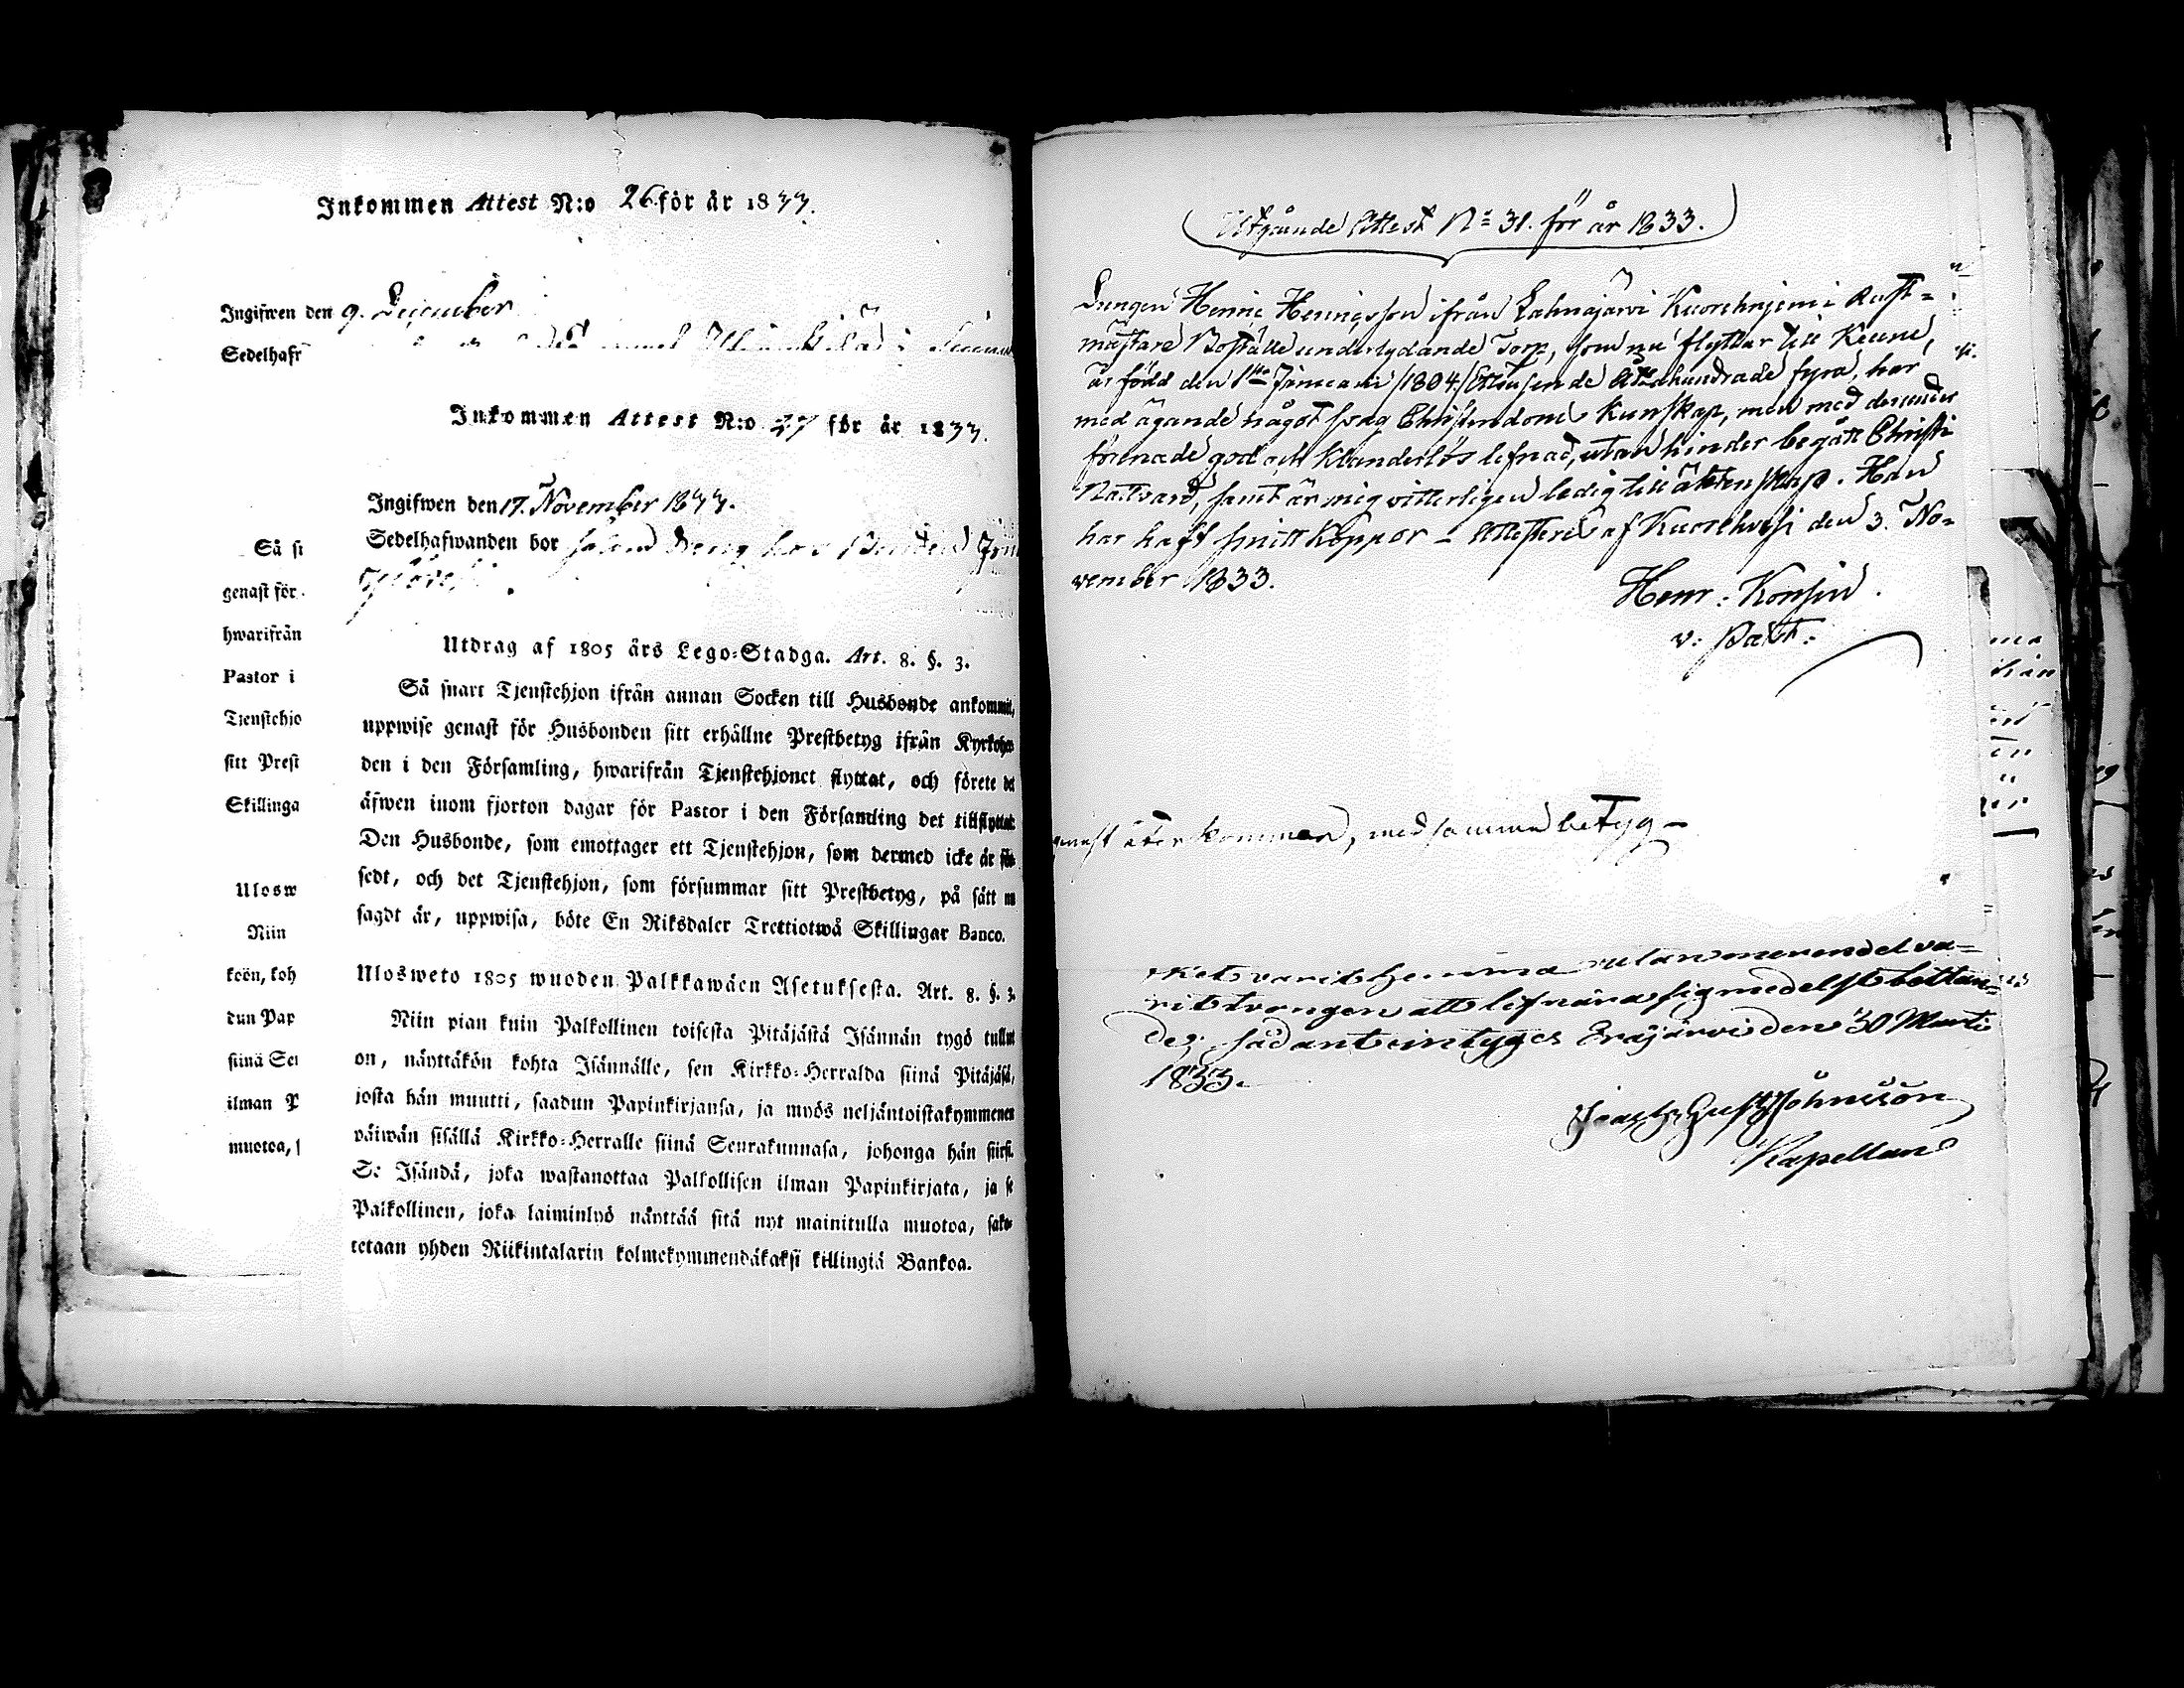 Inkommen Attest N:o 26 för år 1833.
Ingifwen den 9. December
Sedelhafr
Inkommen Attest N:o 27 för år 1833.
Ingifwen den 17. November 1833.
Sedelhafwanden bor såsom Dreng hos
Utdrag af 1805 års Lego-Stadga. Art. 8. §. 3.
Så snart Tjenstehjon ifrån annan Socken till Husbonde ankommit,
uppwise genast för Husbonden sitt erhållne Prestbetyg ifrån Kyrkoher
den i den Församling, hwarifrån Tjenstehjonet flyttat, och förete det
äfwen inom fjorton dagar för Pastor i den Församling det tillflyttat
Den Husbonde, som emottager ett Tjenstehjon, som dermed icke är för
sedt, och det Tjenstehjon, som försummar sitt Prestbetyg, på sätt nu
sagdt är, uppwisa, böte En Riksdaler Trettiotwå Skillingar Banco.
Ulosweto 1805 wuoden Palkkawäen Asetuksesta. Art. 8. §. 3.
Niin pian kuin Palkollinen toisesta Pitäjästä Isännän tygö tullut
on, näyttäkön kohta Isännälle, sen Kirkko-Herralda siinä Pitäjäsä,
josta hän muutti, saadun Papinkirjansa, ja myös neljäntoistakymmenen
päiwän sisällä Kirkko-Herralle siinä Seurakunnasa, johonga hän siirsi.
Se Isändä, joka wastanottaa Palkollisen ilman Papinkirjata, ja se
Palkollinen, joka laiminlyö näyttää sitä nyt mainitulla muotoa, sako-
tetaan yhden Riikintalarin kolmekymmendäkaksi killingiä Bankoa.
Så si
genast för
hwarifrån
Pastor i
Tjenstehjo
sitt Prest
Skillinga
Ulosw
Niin
koön, koh
dun Pap
siinä Seu
ilman P
muotoa, s
Utgående Attest No 31. för år 1833.
Drengen Henric Henricsson ifrån Lahnajärvi Kuorehnjemi Rust=
mästare Boställe underlydande Torp, som nu flyttar till Keuru,
är född den 1sta Januari /1804/ Ettusende Åttahundrade fyra, har
med ägande något svag Christendoms Kunskap, men med derunder
förenade god och klanderlös lefnad, utan hinder begått Christi
Nattvard, samt är mig vitterligen ledig till äktenskap. Han
har haft smitt koppor – Attesteras af Kuorehvesi den 3. No=
vember 1833.
Henr: Konsin.
v: Past:
genast återkommen, med samma betyg –
varit hemma utan merendels va=
rit tvongen att lifnära sig medelst bettlan=
de; sådant intygas Eräjärvi den 30 Marti
1833.
Gust Johnsson
Kapellan